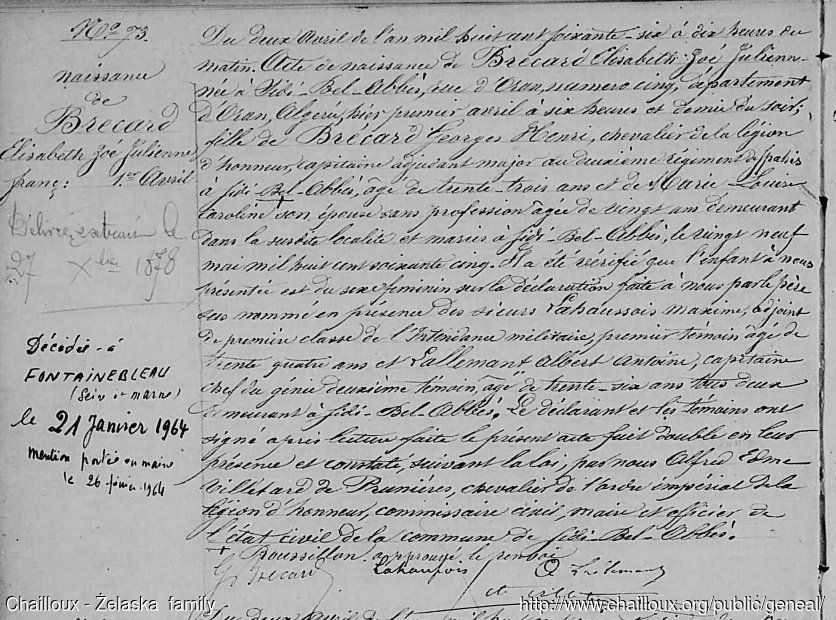 No 73.
naissance
de
Brécard
Elisabeth Zoé Julienne
franç: 1er Avril
Délivré extrait le
27 Xbre 1878
Décédée à
FONTAINEBLEAU
(Seine et marne)
le 21 Janvier 1964
mention portée en mairie
le 26 février 1964
Du deux Avril de l'an mil huit cent soixante-six à dix heures du
matin. Acte de naissance de Brécard Elisabeth Zoé Julienne
née à Sidi-Bel-Abbès, rue d'Oran, numero cinq, département
d'Oran, Algérie, hier premier avril à six heures et demie du soir;
fille de Brécard Georges Henri, chevalier de la légion
d'honneur, capitaine adjudant major au deuxième régiment de spahis
à Sidi-Bel-Abbès, âgé de trente-trois ans et de Marie Louise
Caroline + son épouse sans profession âgée de vingt ans demeurant
dans la susdite localité et mariés à Sidi-Bel-Abbès, le vingt neuf
mai mil huit cent soixante cinq. Il a été vérifié que l'enfant à nous
présentée est du sexe féminin sur la déclaration faite à nous par le père
sus nommé en présence des sieurs Lahaussois maxime, adjoint
de première classe de l'Intendance militaire, premier témoin âgé de
trente quatre ans et Lallemant Albert Antoine, capitaine
chef du génie deuxième témoin, âgé de trente-six ans tous deux
demeurant à Sidi-Bel-Abbès. Le déclarant et les témoins ont
signé après lecture faite le présent acte fait double en leur
présence et constaté, suivant la loi, par nous Alfred Edme
Villetard de Prunières, chevalier de l'ordre impérial de la
légion d'honneur, commissaire civil, maire et officier de
l'état civil de la commune de Sidi-Bel-Abbès.
+ Roussillon approuvé le renvoi
G Brécard Lahaussois A Lallemant
Chailloux - Żelaska family
http://www.chailloux.org/public/geneal/